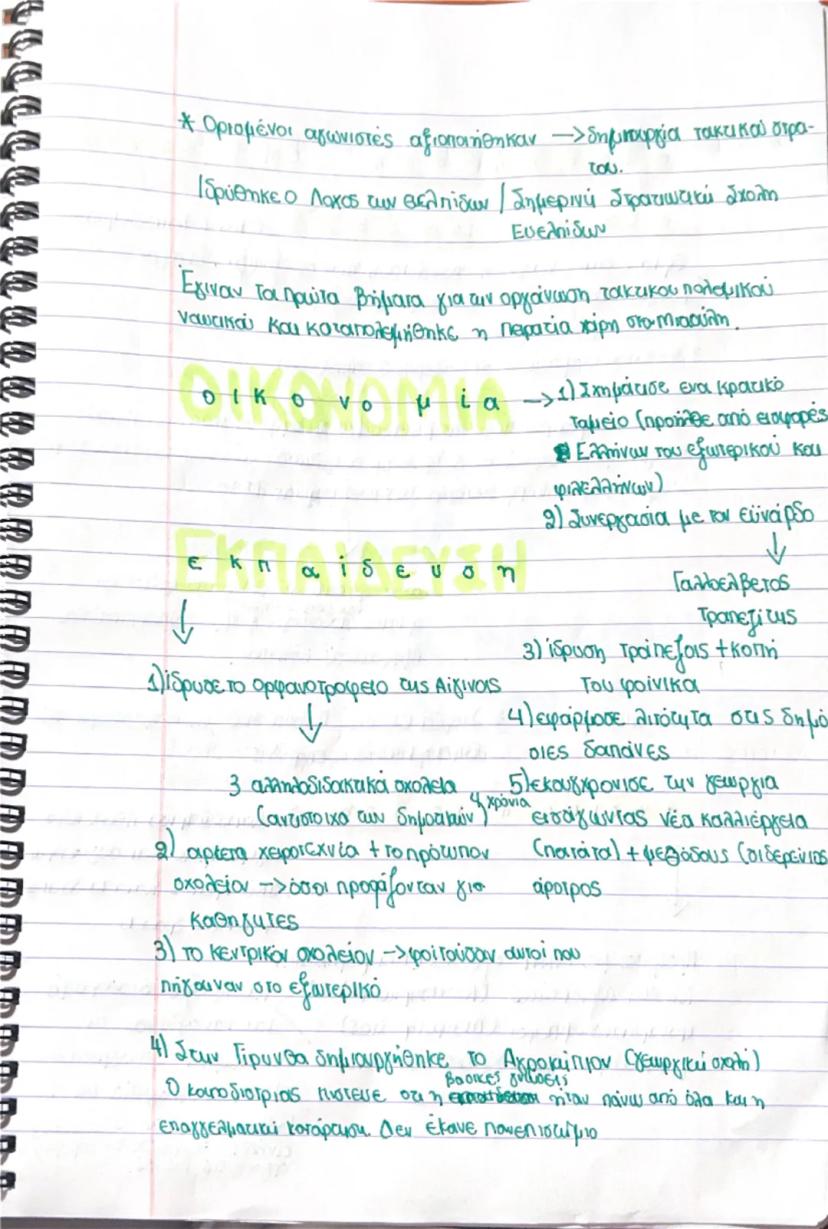 * Ορισμένοι αγωνιστές αξιοποιήθηκαν —> δημιουργία τακτικού στρα-
του.
Ιδρύθηκε ο Λόχος των Ευελπίδων / Σημερινή Στρατιωτική Σχολή
Ευελπίδων
Έγιναν τα πρώτα βήματα για την οργάνωση τακτικού πολεμικού
ναυτικού και καταπολεμήθηκε η πειρατία χάρη στο Μιαούλη.
οικονομία —> 1) Σχημάτισε ενα κρατικό
ταμείο (προήλθε από εισφορές
Ελλήνων του εξωτερικού και
φιλελλήνων)
2) Συνεργασία με τον εϋνάρδο
↓
Γαλλοελβετος
Τραπεζίτης
3) ίδρυση τράπεζας + κοπή
του φοίνικα
4) εφάρμοσε λιτότητα στις δημό
σιες δαπάνες
5) εκσυγχρόνισε την γεωργία
εισάγωντας νέα καλλιέργεια
(πατάτα) + μεθόδους (σιδερένιος
άροτρος
εκπαίδευση
↓
1) ίδρυσε το Ορφανοτροφείο της Αίγινας
↓
3 αλληλοδιδακτικά σχολεία
(αντίστοιχα των δημοτικών) 4 χρόνια
2) χειροτεχνία + το πρότυπον
σχολείον —> όσοι προφίζονταν για
καθηγητές
3) το κεντρικόν σχολείον —> φοιτούσαν αυτοί που
πήγαιναν στο εξωτερικό
4) Στην Τίρυνθα δημιουργήθηκε το Αγροκήπιον (γεωργική σχολή)
Ο καποδίστριας πίστευε οτι η βασικές γνώσεις ήταν πάνω από όλα και η
επαγγελματική κατάρτιση. Δεν έκανε πανεπιστήμιο